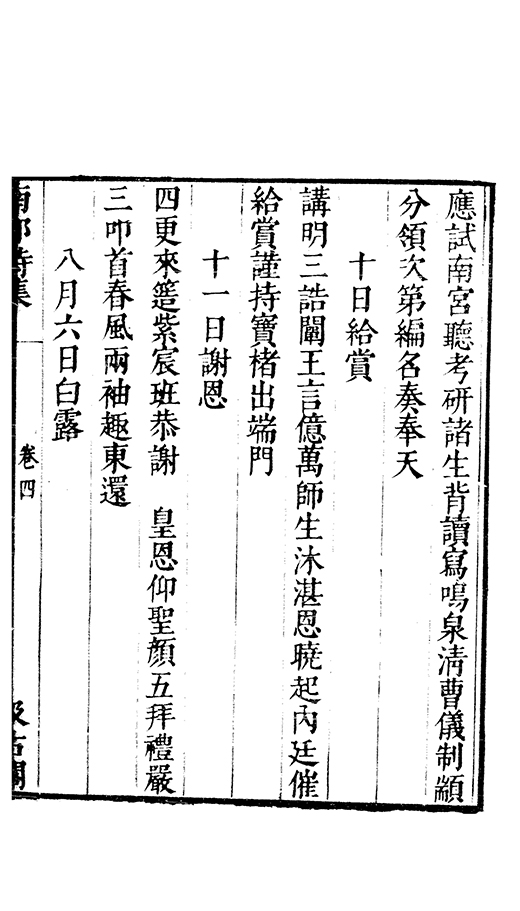 應試南宮聽考研諸生背讀寫鳴泉清曹儀制顓
分領次第編名奏奉天
十日給賞
講明三誥闡王言億萬師生沐湛恩曉起內廷催
給賞謹持寶楮出端門
十一日謝恩
四更來簉紫宸班恭謝　皇恩仰聖顔五拜禮嚴
三叩首春風兩袖趣東還
八月六日白露
詩集
卷四